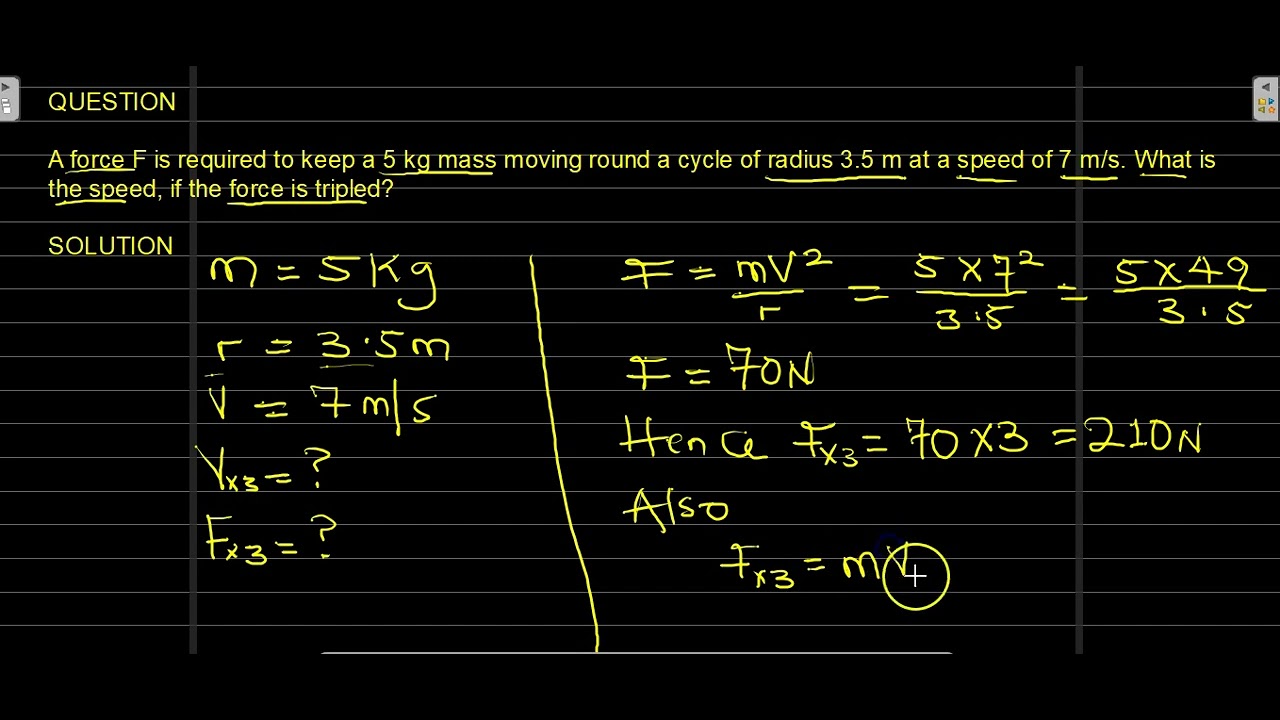 QUESTION
A force F is required to keep a 5 kg mass moving round a cycle of radius 3.5 m at a speed of 7 m/s. What is
the speed, if the force is tripled?
SOLUTION
m = 5Kg
r = 3.5m
V = 7m/s
Vx3 = ?
Fx3 = ?
F = mV²/r = 5x7²/3.5 = 5x49/3.5
F = 70N
Hence Fx3 = 70x3 = 210N
Also
Fx3 = mV